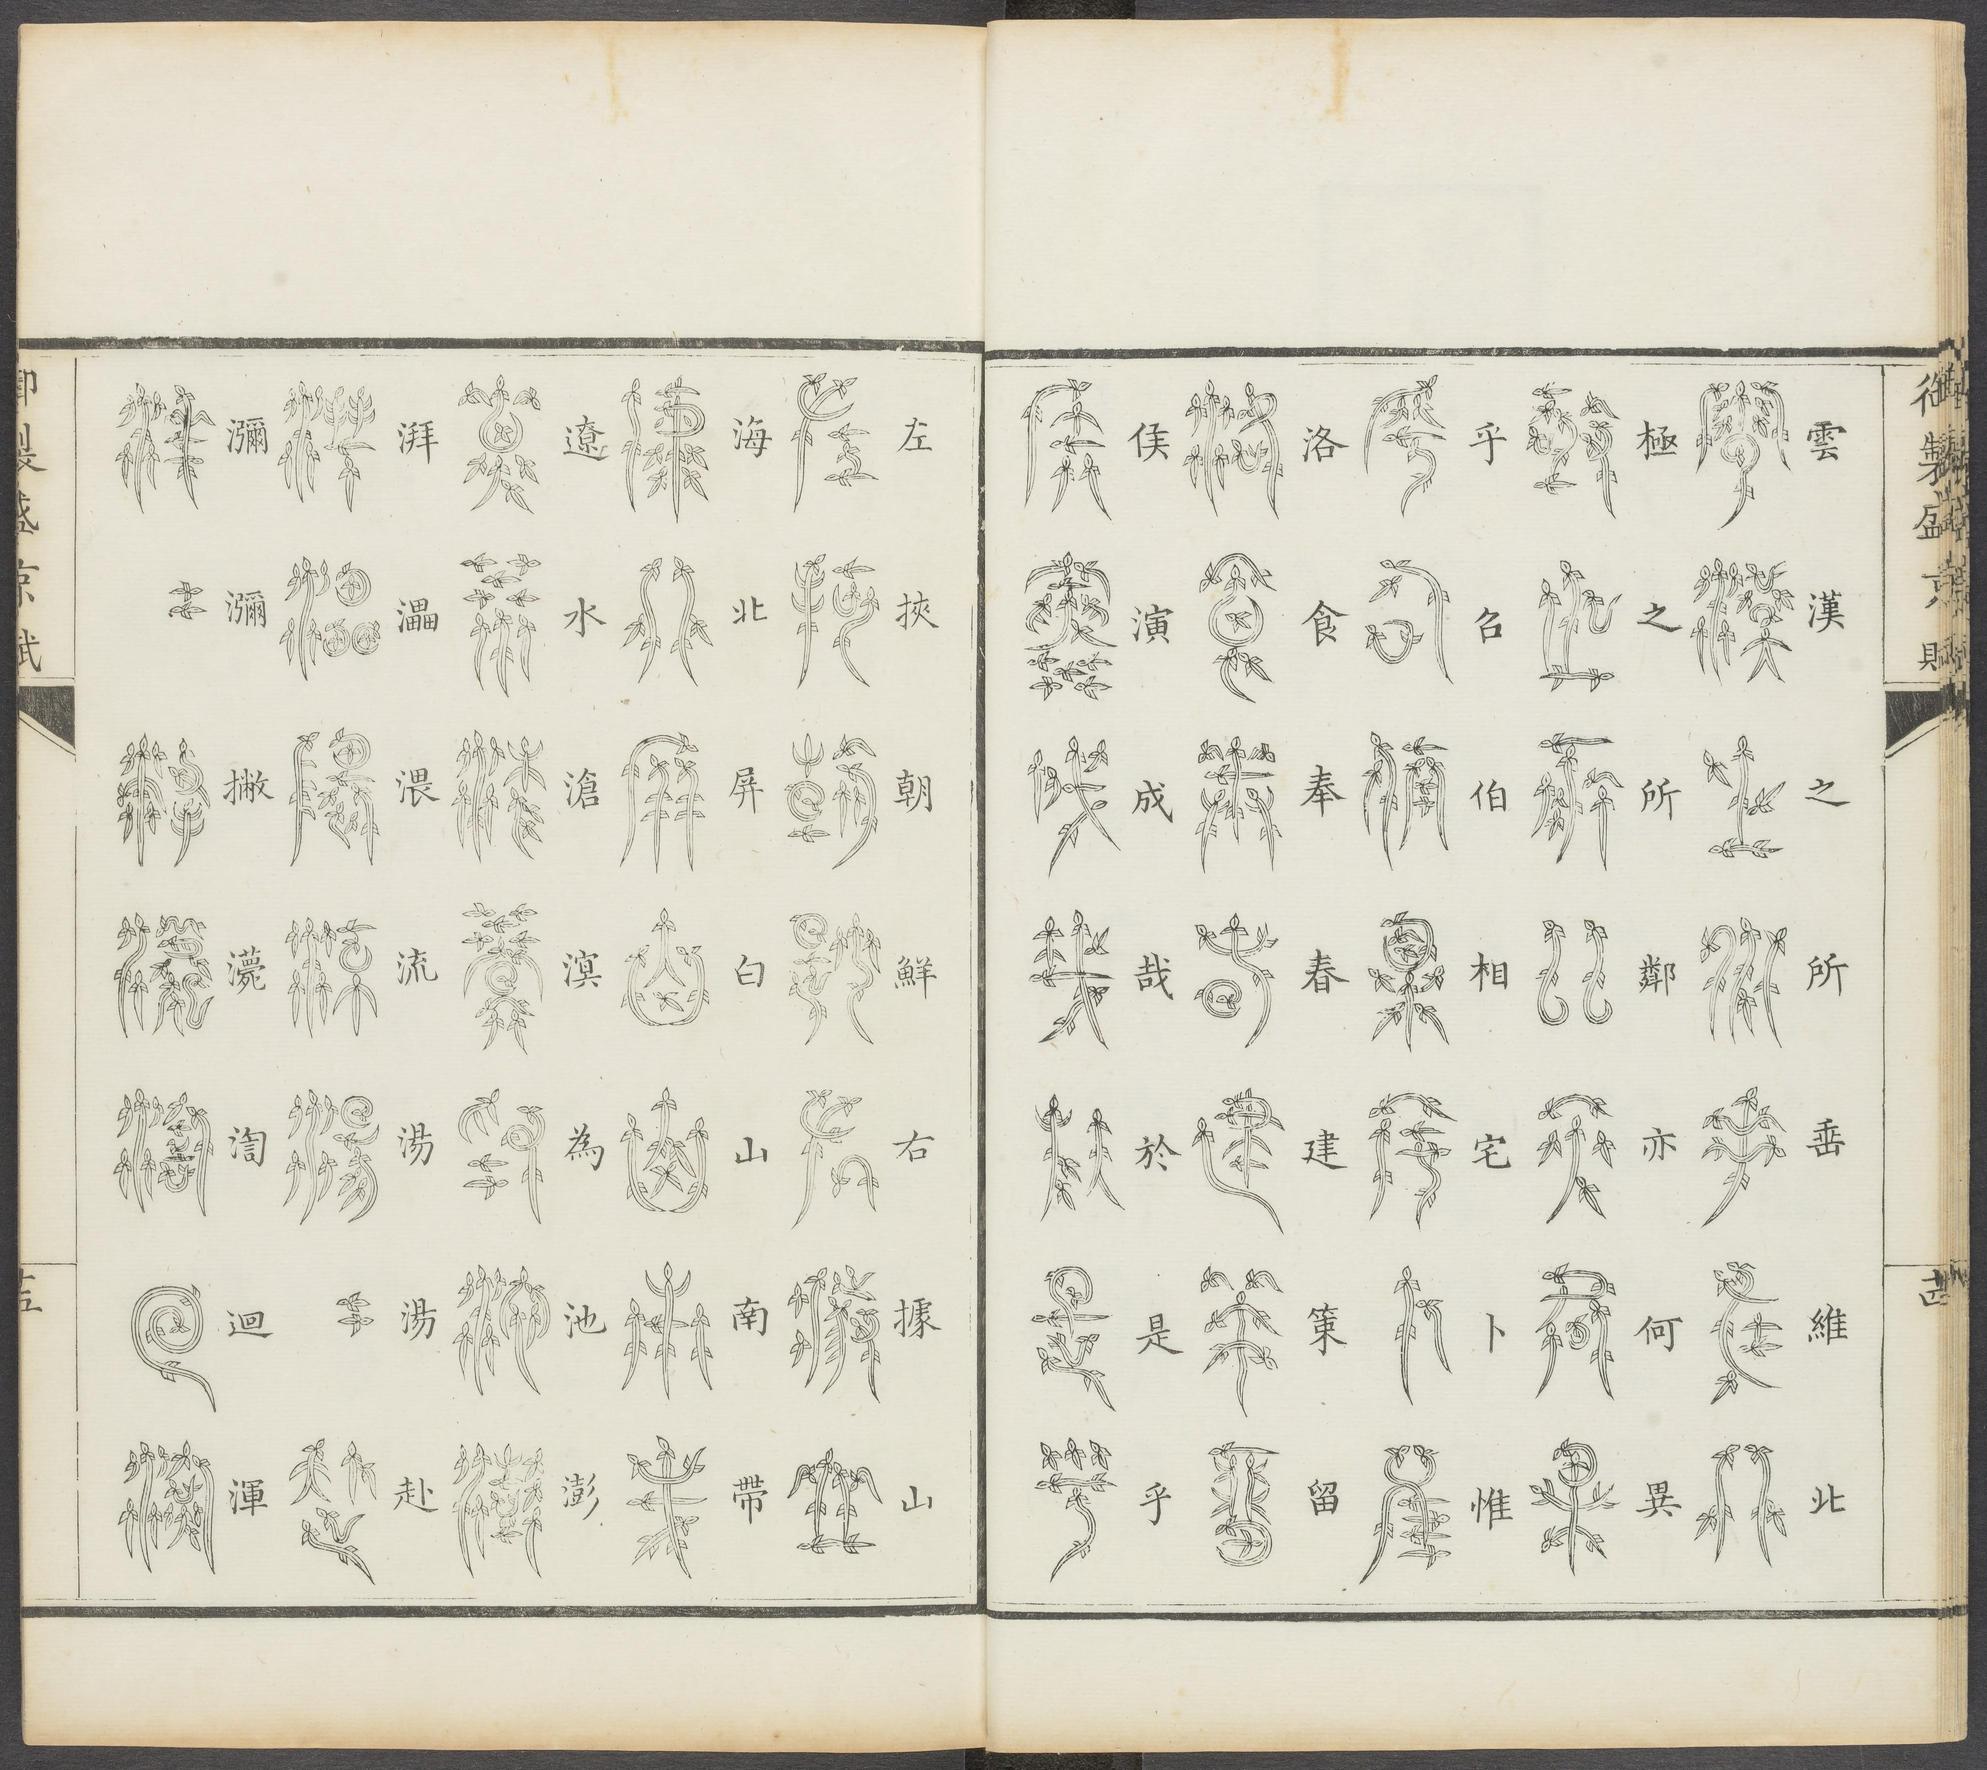 御製盛京賦
雲漢之所垂維北
極之所鄰亦何異
乎召伯相宅卜惟
洛食奉春建策留
侯演成哉於是乎
左挾朝鮮右據山
海北屏白山南帶
遼水滄溟為池澎
湃㵽渨流湯湯赴
瀰瀰撇灪渹迴渾
御製盛京賦